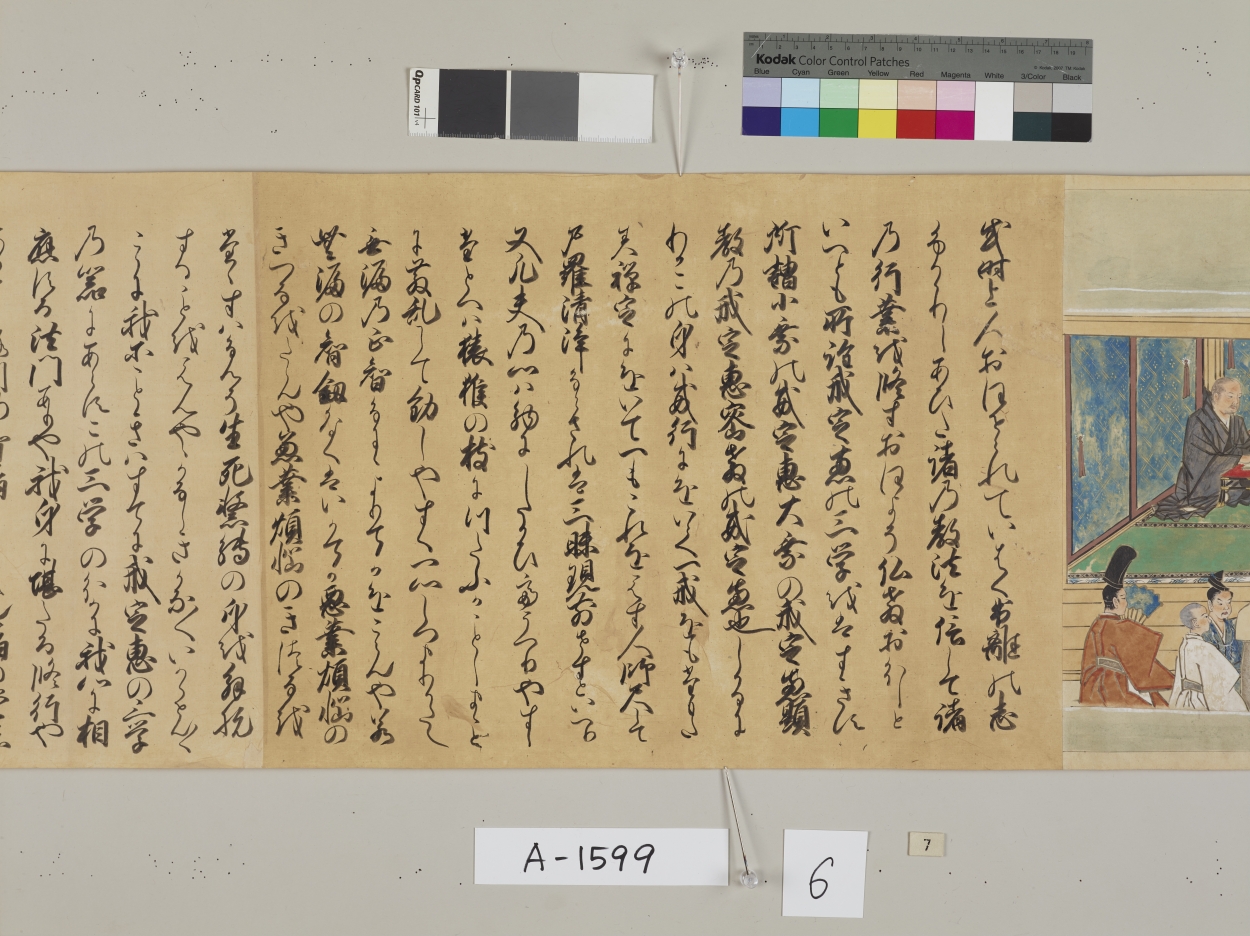 QPCARD 101
Kodak Color Control Patches
Blue Cyan Green Yellow Red Magenta White 3/Color Black
或時上人おほせられていはく出離の志
ふかゝりしあひた諸の教法を信して諸
の行業を修すおほよそ仏教おほしと
いへとも所詮戒定恵の三学をはすきす
所謂小乗の戒定恵大乗の戒定恵顕
教の戒定恵密教の戒定恵也しかるに
わかこの身は戒行にをいて一戒をもたもた
す禅定にをいて一もこれをえす人師尺して
尸羅清浄ならされは三昧現前せすといへり
又凡夫の心は物にしたかひてうつりやすし
たとへは猿猴の枝につたふかことしまこと
に散乱して動しやすく一心しつまりかたし
無漏の正智なにゝよりてかをこらんや若
無漏の智釼なくはいかてか悪業煩悩の
きつなをたゝんや悪業煩悩のきつなを
たゝすはなんそ生死繋縛の身を解脱
することをえんやかなしきかな〱いかゝせん〱
こゝに我等ことき はすてに戒定恵の三学
の器にあらすこの三学のほかに我心に相
應する法門ありや我身に堪たる修行や
A-1599
6
7